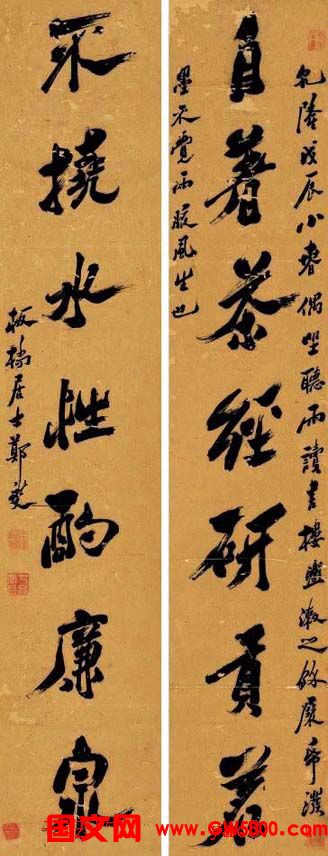 乾隆戊辰小春偶坐聽雨讀書樓盥漱之餘展帋濡
自著茶經研貢茗
墨不覺兩腋風生也
不撓水性酌廉泉
板橋居士鄭燮
国文网 www.GW5000.com